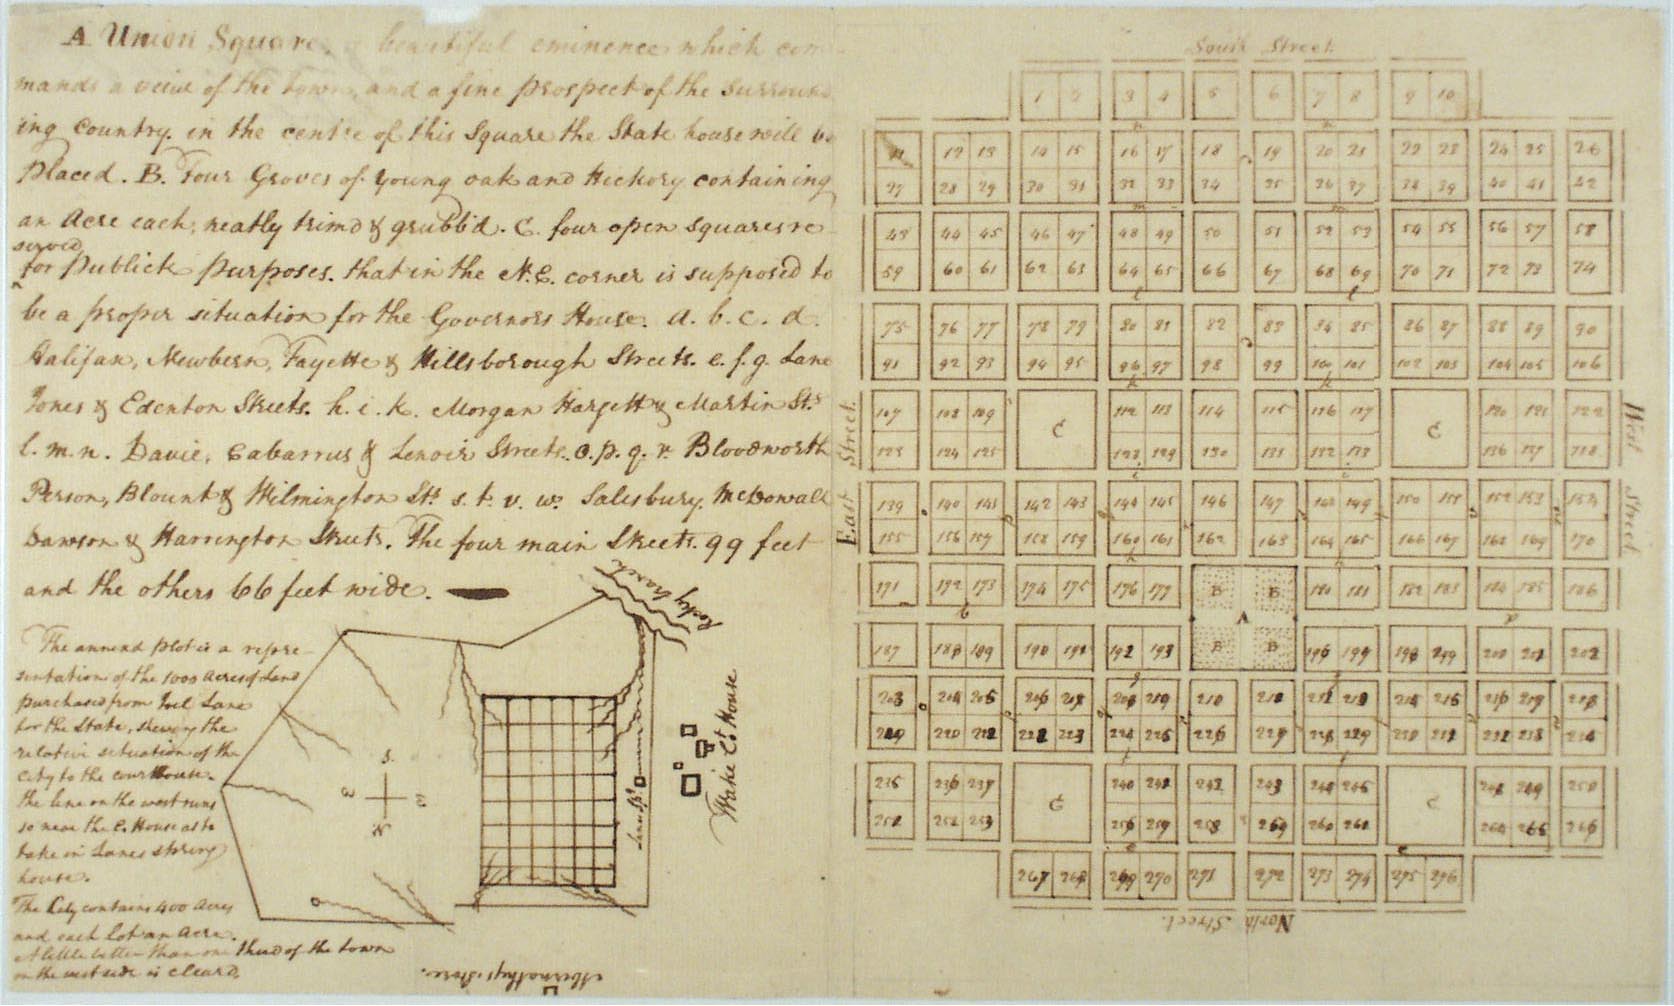 A Union Square, a beautiful eminence which com-
mands a view of the town, and a fine prospect of the surround
ing Country. in the centre of this Square the State house will be
Placed. B. Four Groves of young oak and Hickory containing
an Acre each, neatly trimd & grubb'd. C. four open squares re
served
for Publick purposes. that in the N.E. corner is supposed to
be a proper situation for the Governors House. a. b. c. d.
Halifax, Newbern, Fayette & Hillsborough Streets. e. f. g. Lane
Jones & Edenton Streets. h. i. k. Morgan Hargett & Martin Sts
l. m. n. Davie, Cabarrus & Lenoir Streets. o. p. q. r. Bloodworth
Person, Blount & Wilmington Sts s. t. v. w. Salisbury, McDowall
Dawson & Harrington Streets. The four main Streets 99 feet
and the others 66 feet wide.
The annexd plot is a repre-
sentation of the 1000 acres of Land
purchased from Joel Lane
for the State, shewing the
relative situation of the
City to the court house.
the line on the west runs
so near the C. House as to
take in Lanes spring
house.
The City contains 400 acres
and each lot an acre.
A little better than one third of the town
on the west side is cleard.
Rocky branch
S.
N
Lanes Spg
Wake Ct House
Abernathys store.
South Street.
1 2 3 4 5 6 7 8 9 10
n n
11 12 13 14 15 16 17 18 19 20 21 22 23 24 25 26
27 28 29 30 31 32 33 34 35 36 37 38 39 40 41 42
m m
43 44 45 46 47 48 49 50 51 52 53 54 55 56 57 58
59 60 61 62 63 64 65 66 67 68 69 70 71 72 73 74
l l
75 76 77 78 79 80 81 82 83 84 85 86 87 88 89 90
91 92 93 94 95 96 97 98 99 100 101 102 103 104 105 106
k k
107 108 109 C 112 113 114 115 116 117 C 120 121 122
123 124 125 128 129 130 131 132 133 136 137 138
i i
East Street
West Street
139 140 141 142 143 144 145 146 147 148 149 150 151 152 153 154
155 156 157 158 159 160 161 162 163 164 165 166 167 168 169 170
h h
171 172 173 174 175 176 177 B B 180 181 182 183 184 185 186
A
187 188 189 190 191 192 193 B B 196 197 198 199 200 201 202
g g
203 204 205 206 207 208 209 210 211 212 213 214 215 216 217 218
219 220 221 222 223 224 225 226 227 228 229 230 231 232 233 234
f f
235 236 237 C 240 241 242 243 244 245 C 248 249 250
251 252 253 256 257 258 259 260 261 264 265 266
e e
267 268 269 270 271 272 273 274 275 276
North Street.